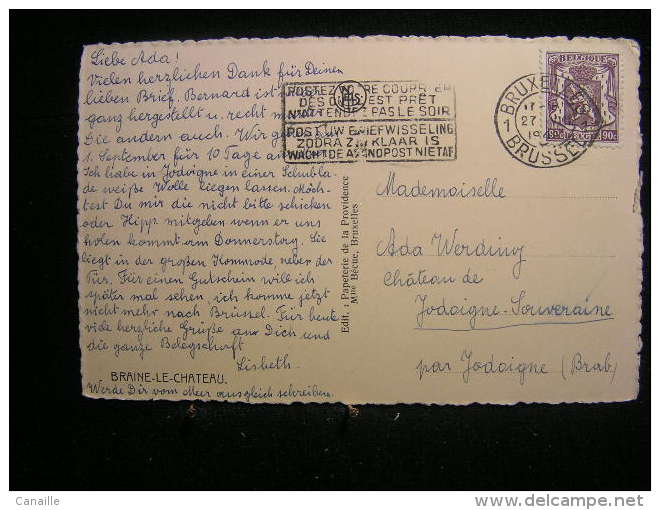 Liebe Ada!
Vielen herzlichen Dank für Deinen
lieben Brief. Bernard ist
ganz hergestellt u. recht
Die andern auch. Wir
1. September für 10 Tage an
Ich habe in Jodoigne in einer Schubla-
de weiße Wolle liegen lassen. Möch-
test Du mir die nicht bitte schicken
oder Hipp mitgeben wenn er uns
holen kommt am Donnerstag. Sie
liegt in der großen Kommode neben der
Tür. Für einen Gutschein will ich
später mal sehen, ich komme jetzt
nicht mehr nach Brüssel. Für heute
viele herzliche Grüße an Dich und
die ganze Belegschaft
Lisbeth.
BRAINE-LE-CHATEAU.
Werde Dir vom Meer aus gleich schreiben.
Edit. : Papeterie de la Providence
Mme Bécue, Bruxelles
POSTEZ VOTRE COURRIER
DES QU'IL EST PRÊT
N'ATTENDEZ PAS LE SOIR
POST UW BRIEFWISSELING
ZODRA ZIJ KLAAR IS
WACHT DE AVONDPOST NIET AF
BRUXELLES
1
27
19
BRUSSEL
BELGIQUE
90c 90c
Mademoiselle
Ada Werding
Château de
Jodoigne-Souveraine
par Jodoigne (Brab)
Canaille
http://www.delcampe.net